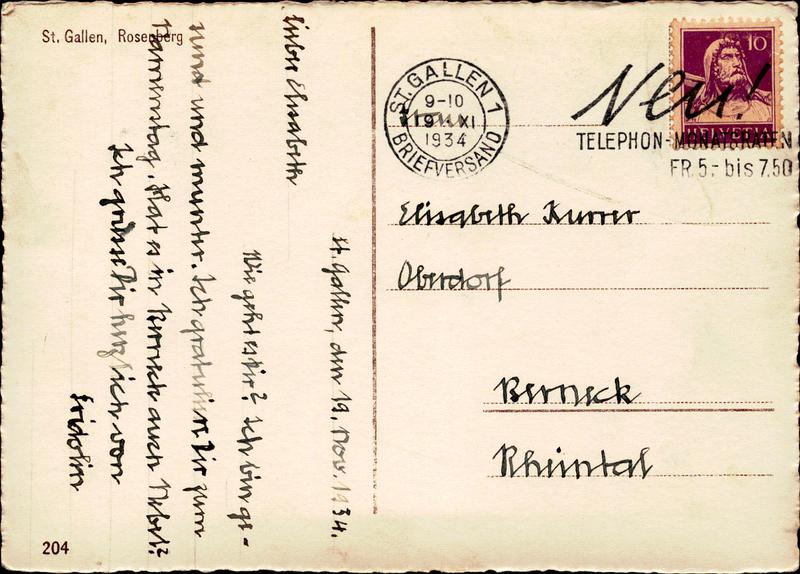 St. Gallen, Rosenberg
St. Gallen, den 19. Nov. 1934.
Liebe Elisabeth
Wie geht es Dir? Ich bin ge-
sund und munter. Ich gratuliere Dir zum
Namenstag. Hat es in Berneck auch Nebel?
Ich grüsse Dich herzlich von
Fridolin
204
ST. GALLEN 1
9-10
19. XI
1934
BRIEFVERSAND
Neu!
TELEPHON-MONATSRATEN
FR. 5.- bis 7.50
10
HELVETIA
Elisabeth Kurrer
Oberdorf
Berneck
Rheintal